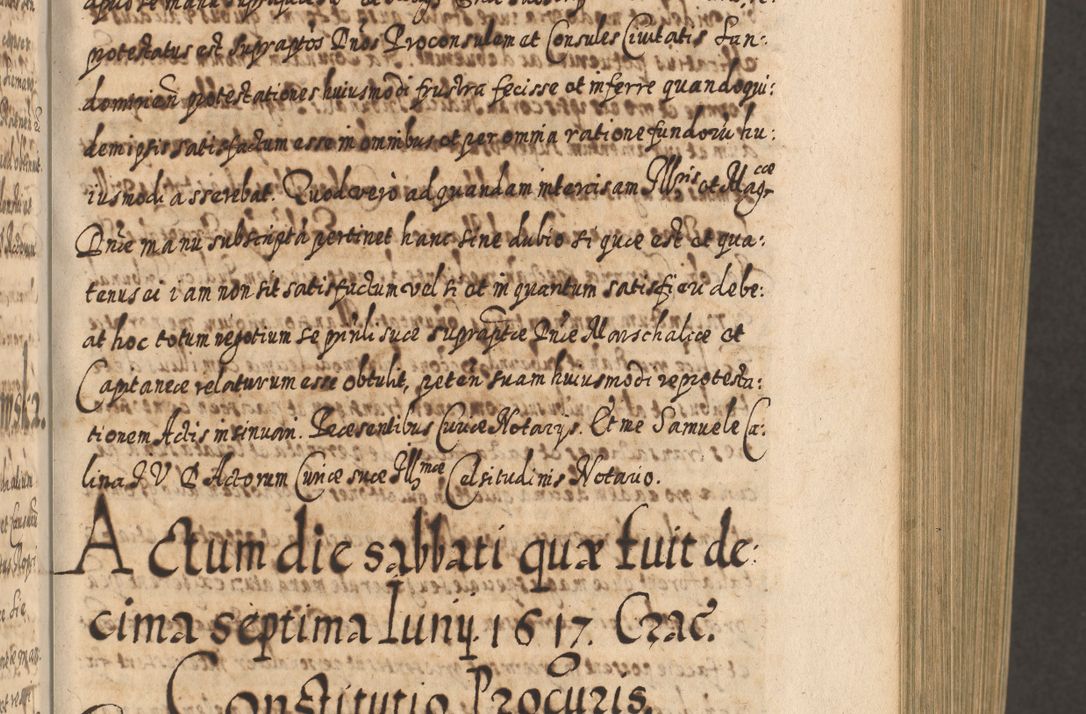 protestatus est supraptos Dnos Proconsulem et Consules Civitatis Fun:
dominien protestationes huiusmodi frustra fecisse et inferre quandoqui:
dem ipsis satisfactum esse in omnibus et per omnia ratione fundorū hu:
iusmodi asserebat. Quod vero ad quandam intercisam Illris et Magcæ
Dnæ manu subscripta pertinet hanc sine dubio si quæ est et qua:
tenus ei iam non sit satisfactum vel si et in quantum satisfieri debe:
at hoc totum negotium se prnli suæ supraptæ Dnæ Marschalicæ et
Captaneæ relaturum esse obtulit, peten suam huiusmodi reprotesta:
tionem Actis insinuari. Præsentibus Curiæ Notarijs. Et me Samuele Ca:
lina IVD Actorum Curiæ suæ Illmæ Celsitudinis Notario.
Actum die sabbati quæ fuit de:
cima septima Iunij. 1617. Crac.
Constitutio Procuris.